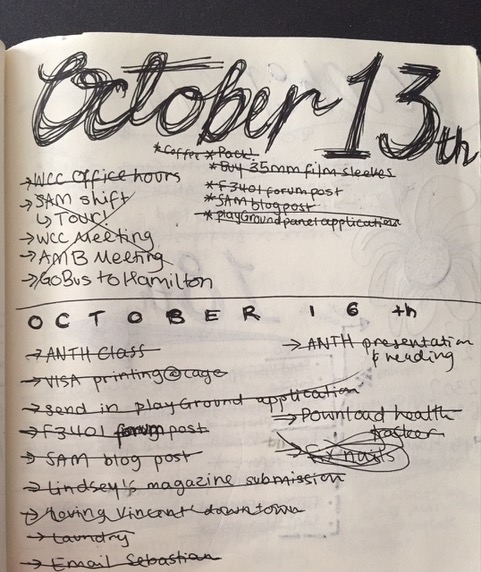 October 13th
*Coffee *Pack!
*Buy 35mm film sleeves
*F3401 forum post
*SAM blog post
*playGround panel application
→WCC Office hours
→SAM shift
↳ Tour!
→WCC Meeting
→AMB Meeting
→GoBus to Hamilton
OCTOBER 16th
→ANTH Class
→VISA printing@cage
→send in playGround application
→F3401 forum post
→SAM blog post
→Lindsey's magazine submission
→Loving Vincent downtown
→Laundry
→Email Sebastian
→ANTH presentation
& reading
→Download health
tracker
→Fix nails